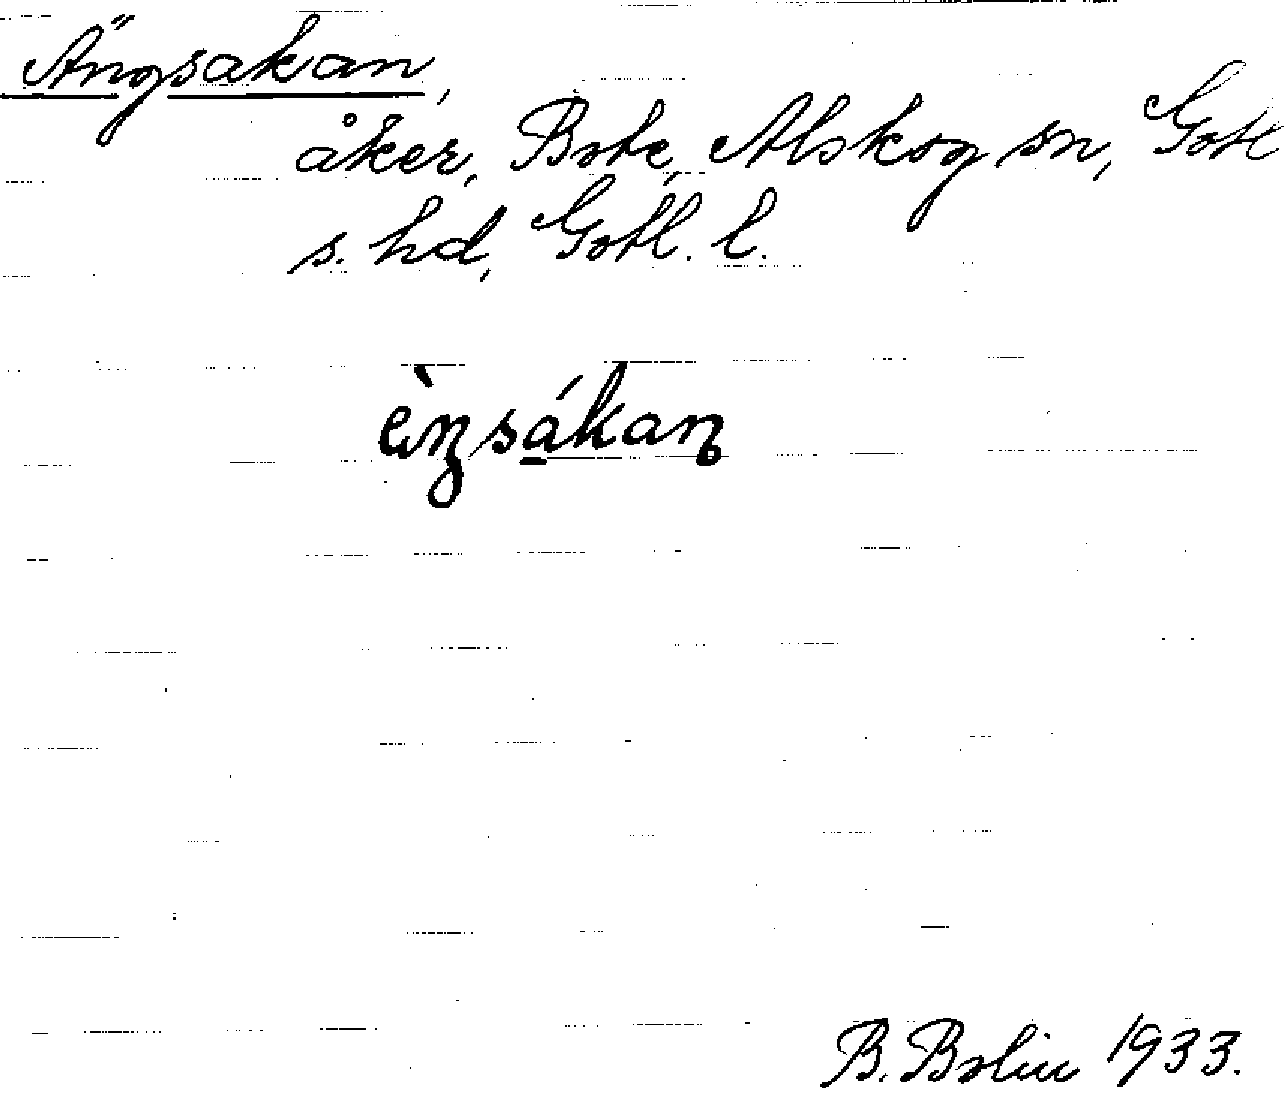 Ängsakan,
åker, Bote, Alskog sn, Gotl
s. hd, Gotl. l.
èŋsákan
B. Bolin 1933.